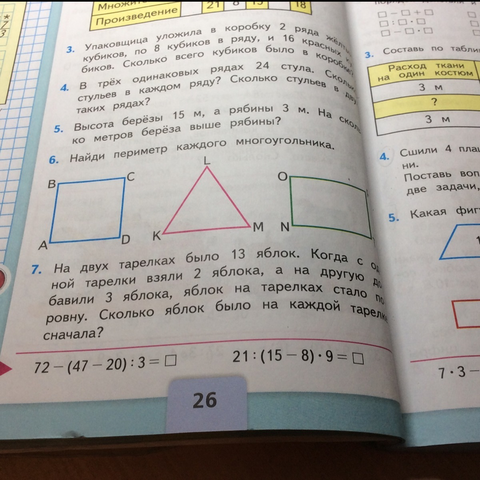 Множит
Произведение 21 18
3. Упаковщица уложила в коробку 2 ряда
кубиков, по 8 кубиков в ряду, и 16 красных
биков. Сколько всего кубиков было в
4. В трёх одинаковых рядах 24 стула.
стульев в каждом ряду? Сколько стульев в
таких рядах?
5. Высота берёзы 15 м, а рябины 3 м. На
ко метров берёза выше рябины?
6. Найди периметр каждого многоугольника.
B C L O
A D K M N
7. На двух тарелках было 13 яблок. Когда с
ной тарелки взяли 2 яблока, а на другую
бавили 3 яблока, яблок на тарелках стало
ровну. Сколько яблок было на каждой
сначала?
72 – (47 – 20) : 3 = □ 21 : (15 – 8) · 9 = □
26
3. Составь по табли
Расход ткани
на один костюм
3 м
?
3 м
4. Сшили 4
ни.
Поставь
две задачи,
5. Какая
7 · 3 –